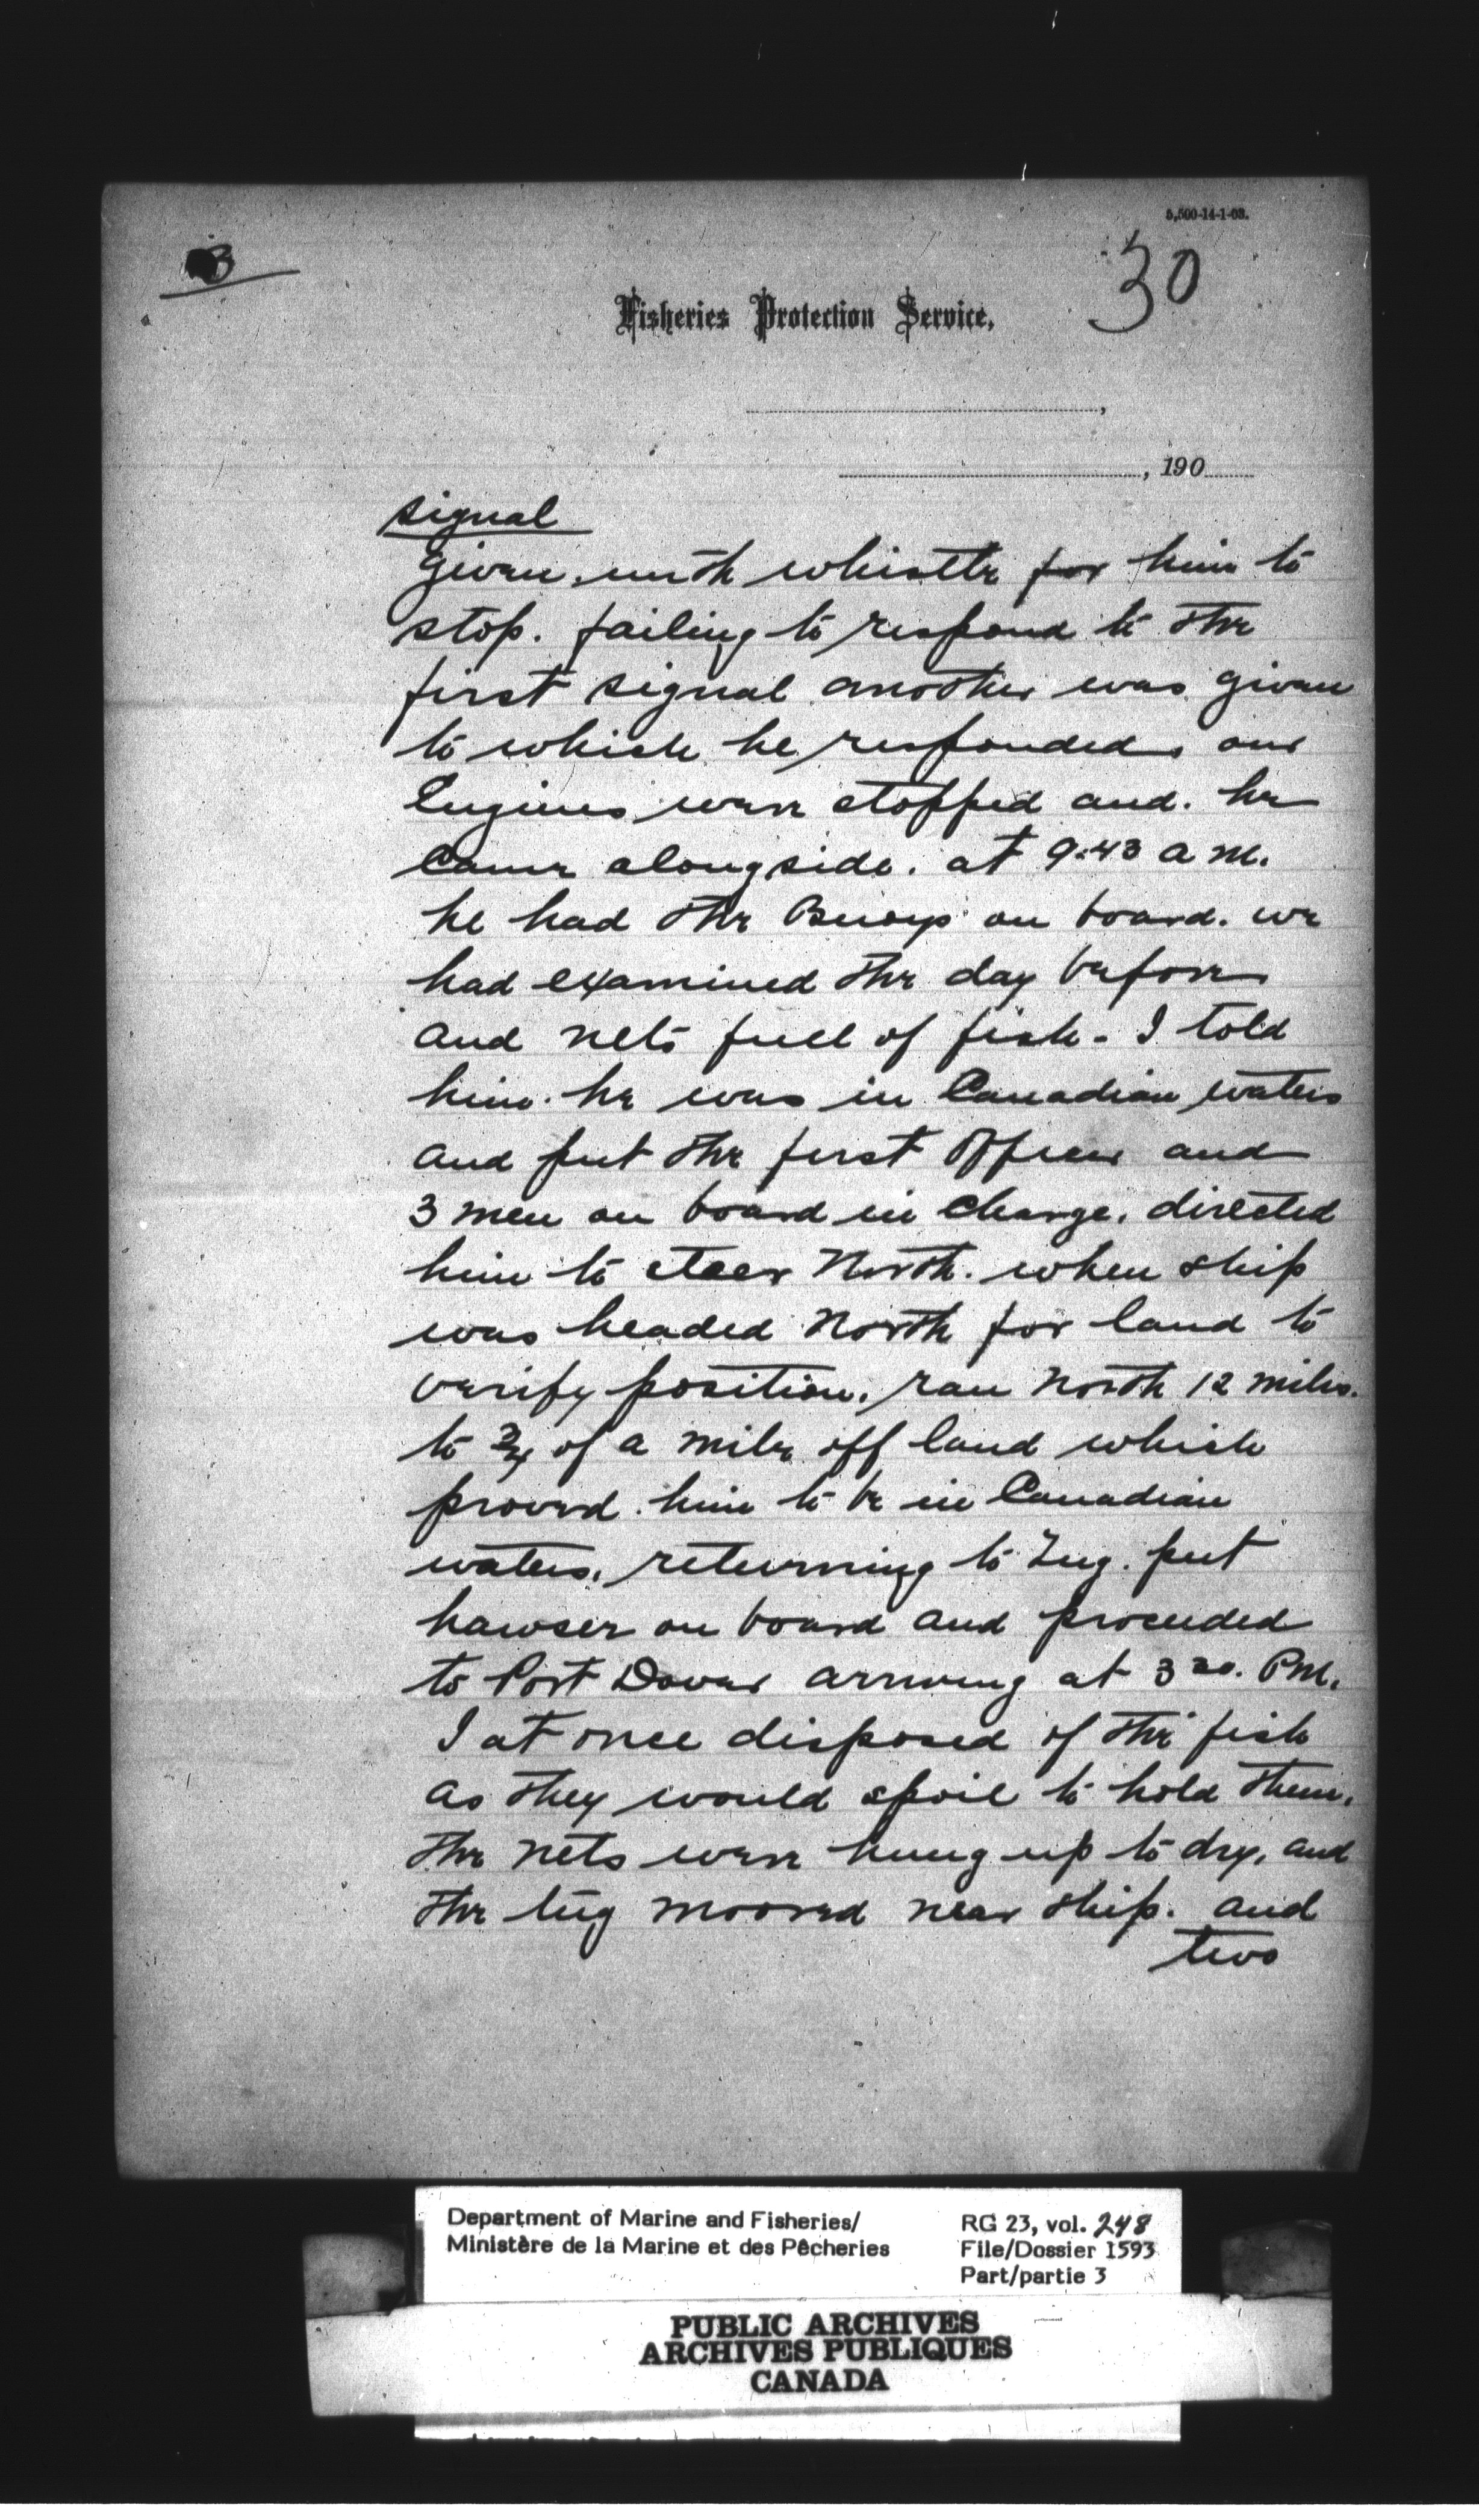 5,500-14-1-03.
3
30
Fisheries Protection Service,
, 190
signal
given. with whistle for him to
stop. failing to respond to the
first signal another was given
to which he responded, our
Engines were stopped and. he
came alongside. at 9.43 a m.
he had the Buoys on board. we
had examined the day before
and nets full of fish. I told
him. he was in Canadian waters
and put the first Officer and
3 men on board in charge. directed
him to steer North. when ship
was headed North for land to
verify position. ran North 12 miles.
to 3/4 of a mile off land which
proved. him to be in Canadian
waters. returning to Tug. put
hawser on board and proceeded
to Port Dover arriving at 3 20. PM.
I at once disposed of the fish
as they would spoil to hold them.
the nets were hung up to dry, and
the tug moored near ship. and
two
Department of Marine and Fisheries/
Ministère de la Marine et des Pêcheries
RG 23, vol. 248
File/Dossier 1593
Part/partie 3
PUBLIC ARCHIVES
ARCHIVES PUBLIQUES
CANADA